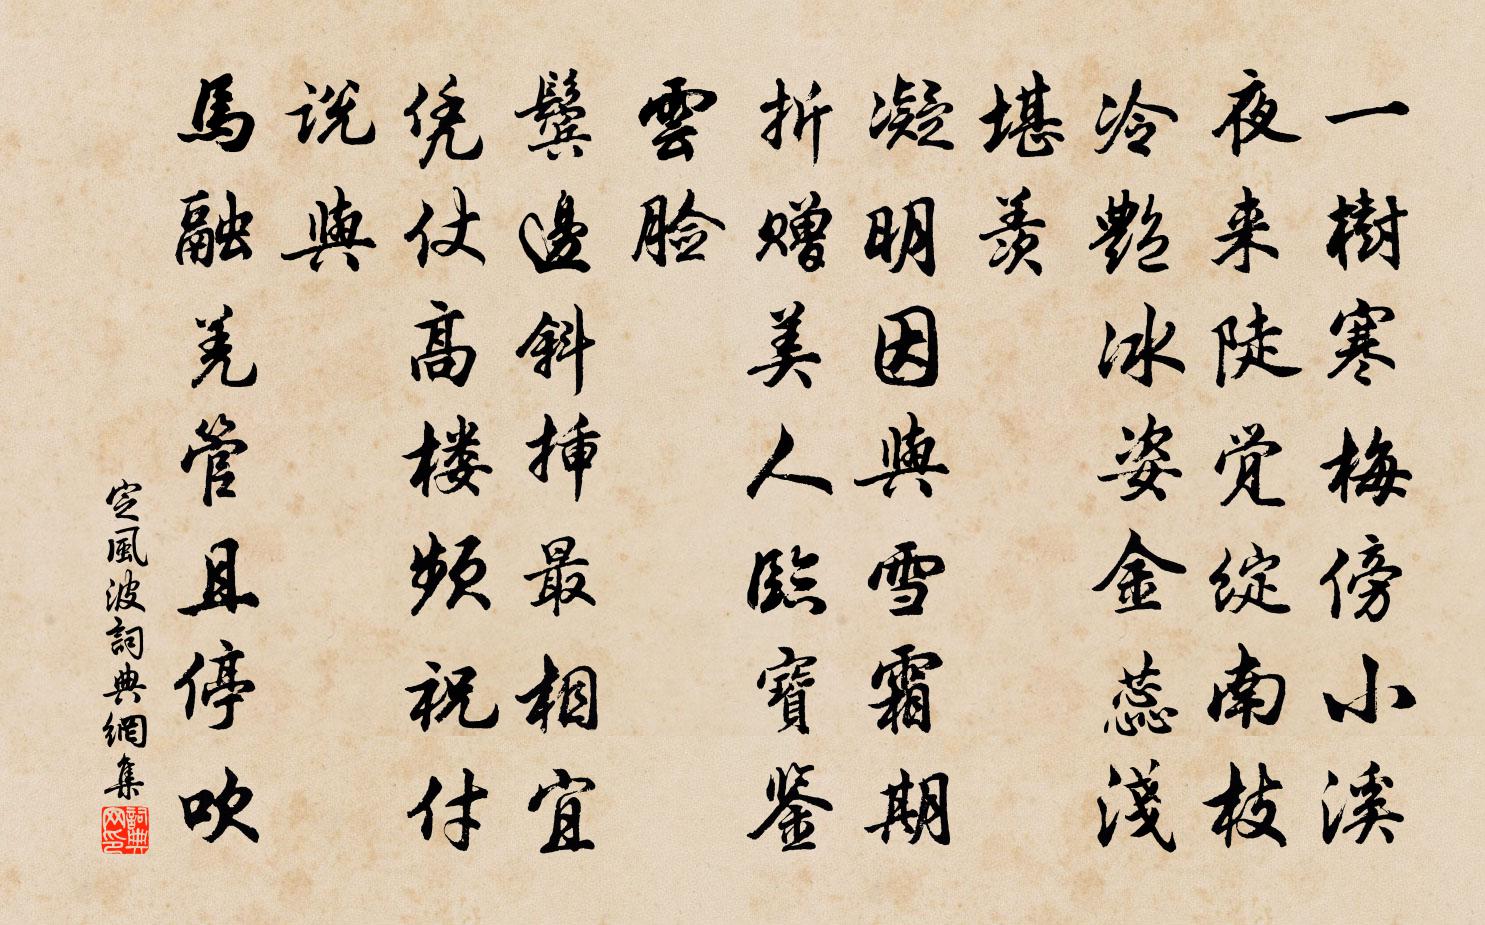 一樹寒梅傍小溪
夜来陡覚綻南枝
冷艶冰姿金蕊淺
堪羨
凝明因與雪霜期
折赠美人臨寶鉴
雲脸
鬓邊斜挿最相宜
凭仗高楼频祝付
说與
馬融羌管且停吹
定風波詞典網集
詞典网印